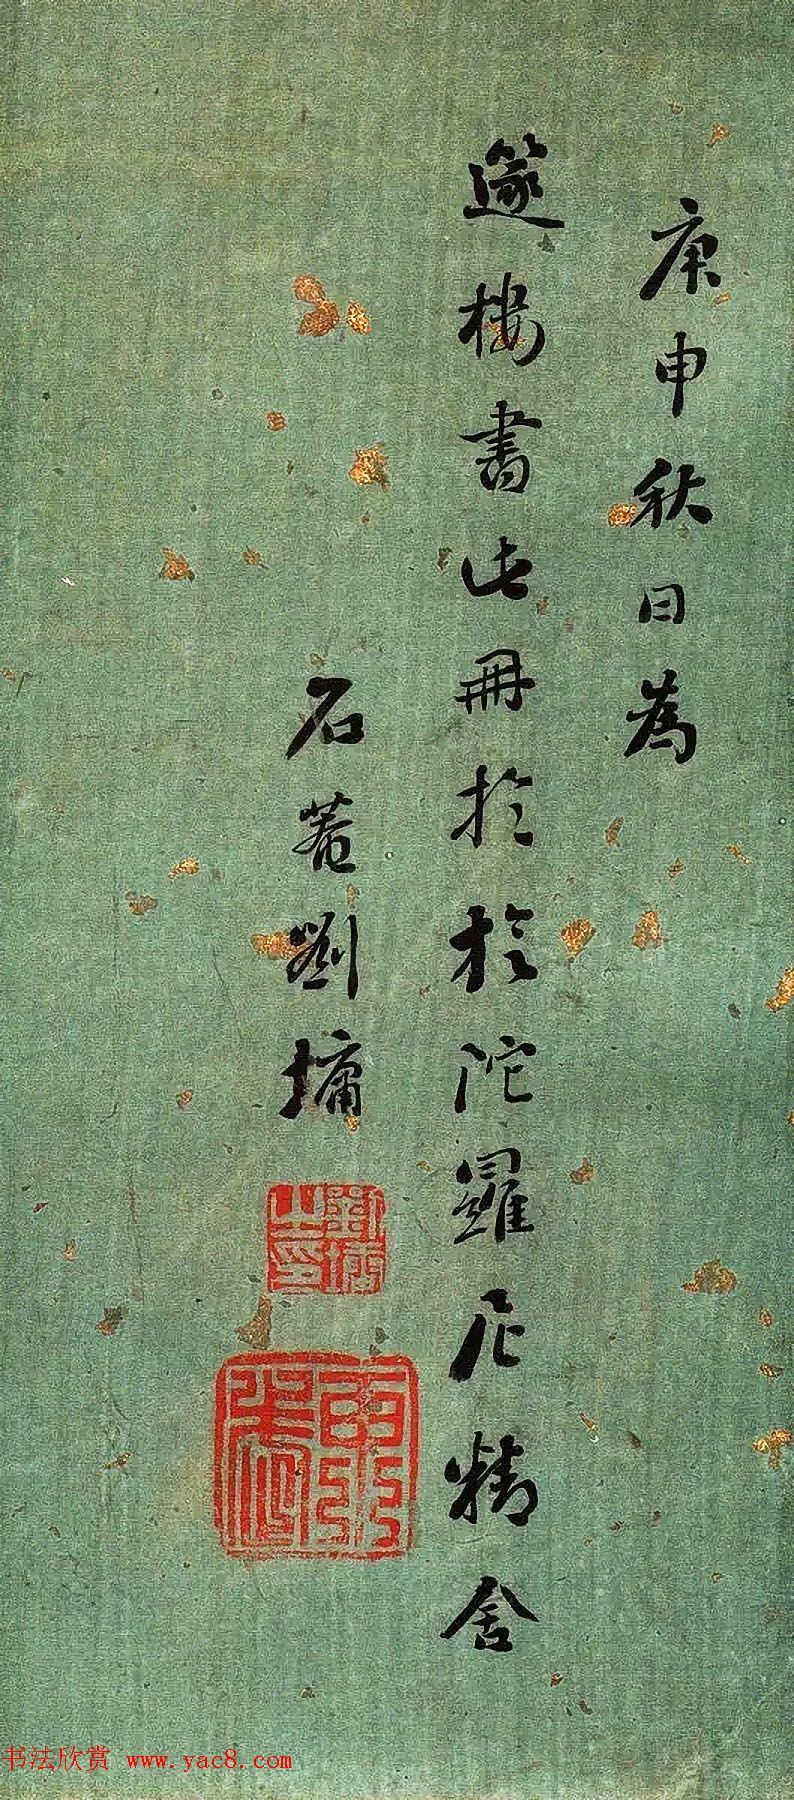 庚申秋日為
邃樓書此冊於
於陀羅尼精舍
石菴劉墉
劉墉之印
书法欣赏 www.yac8.com